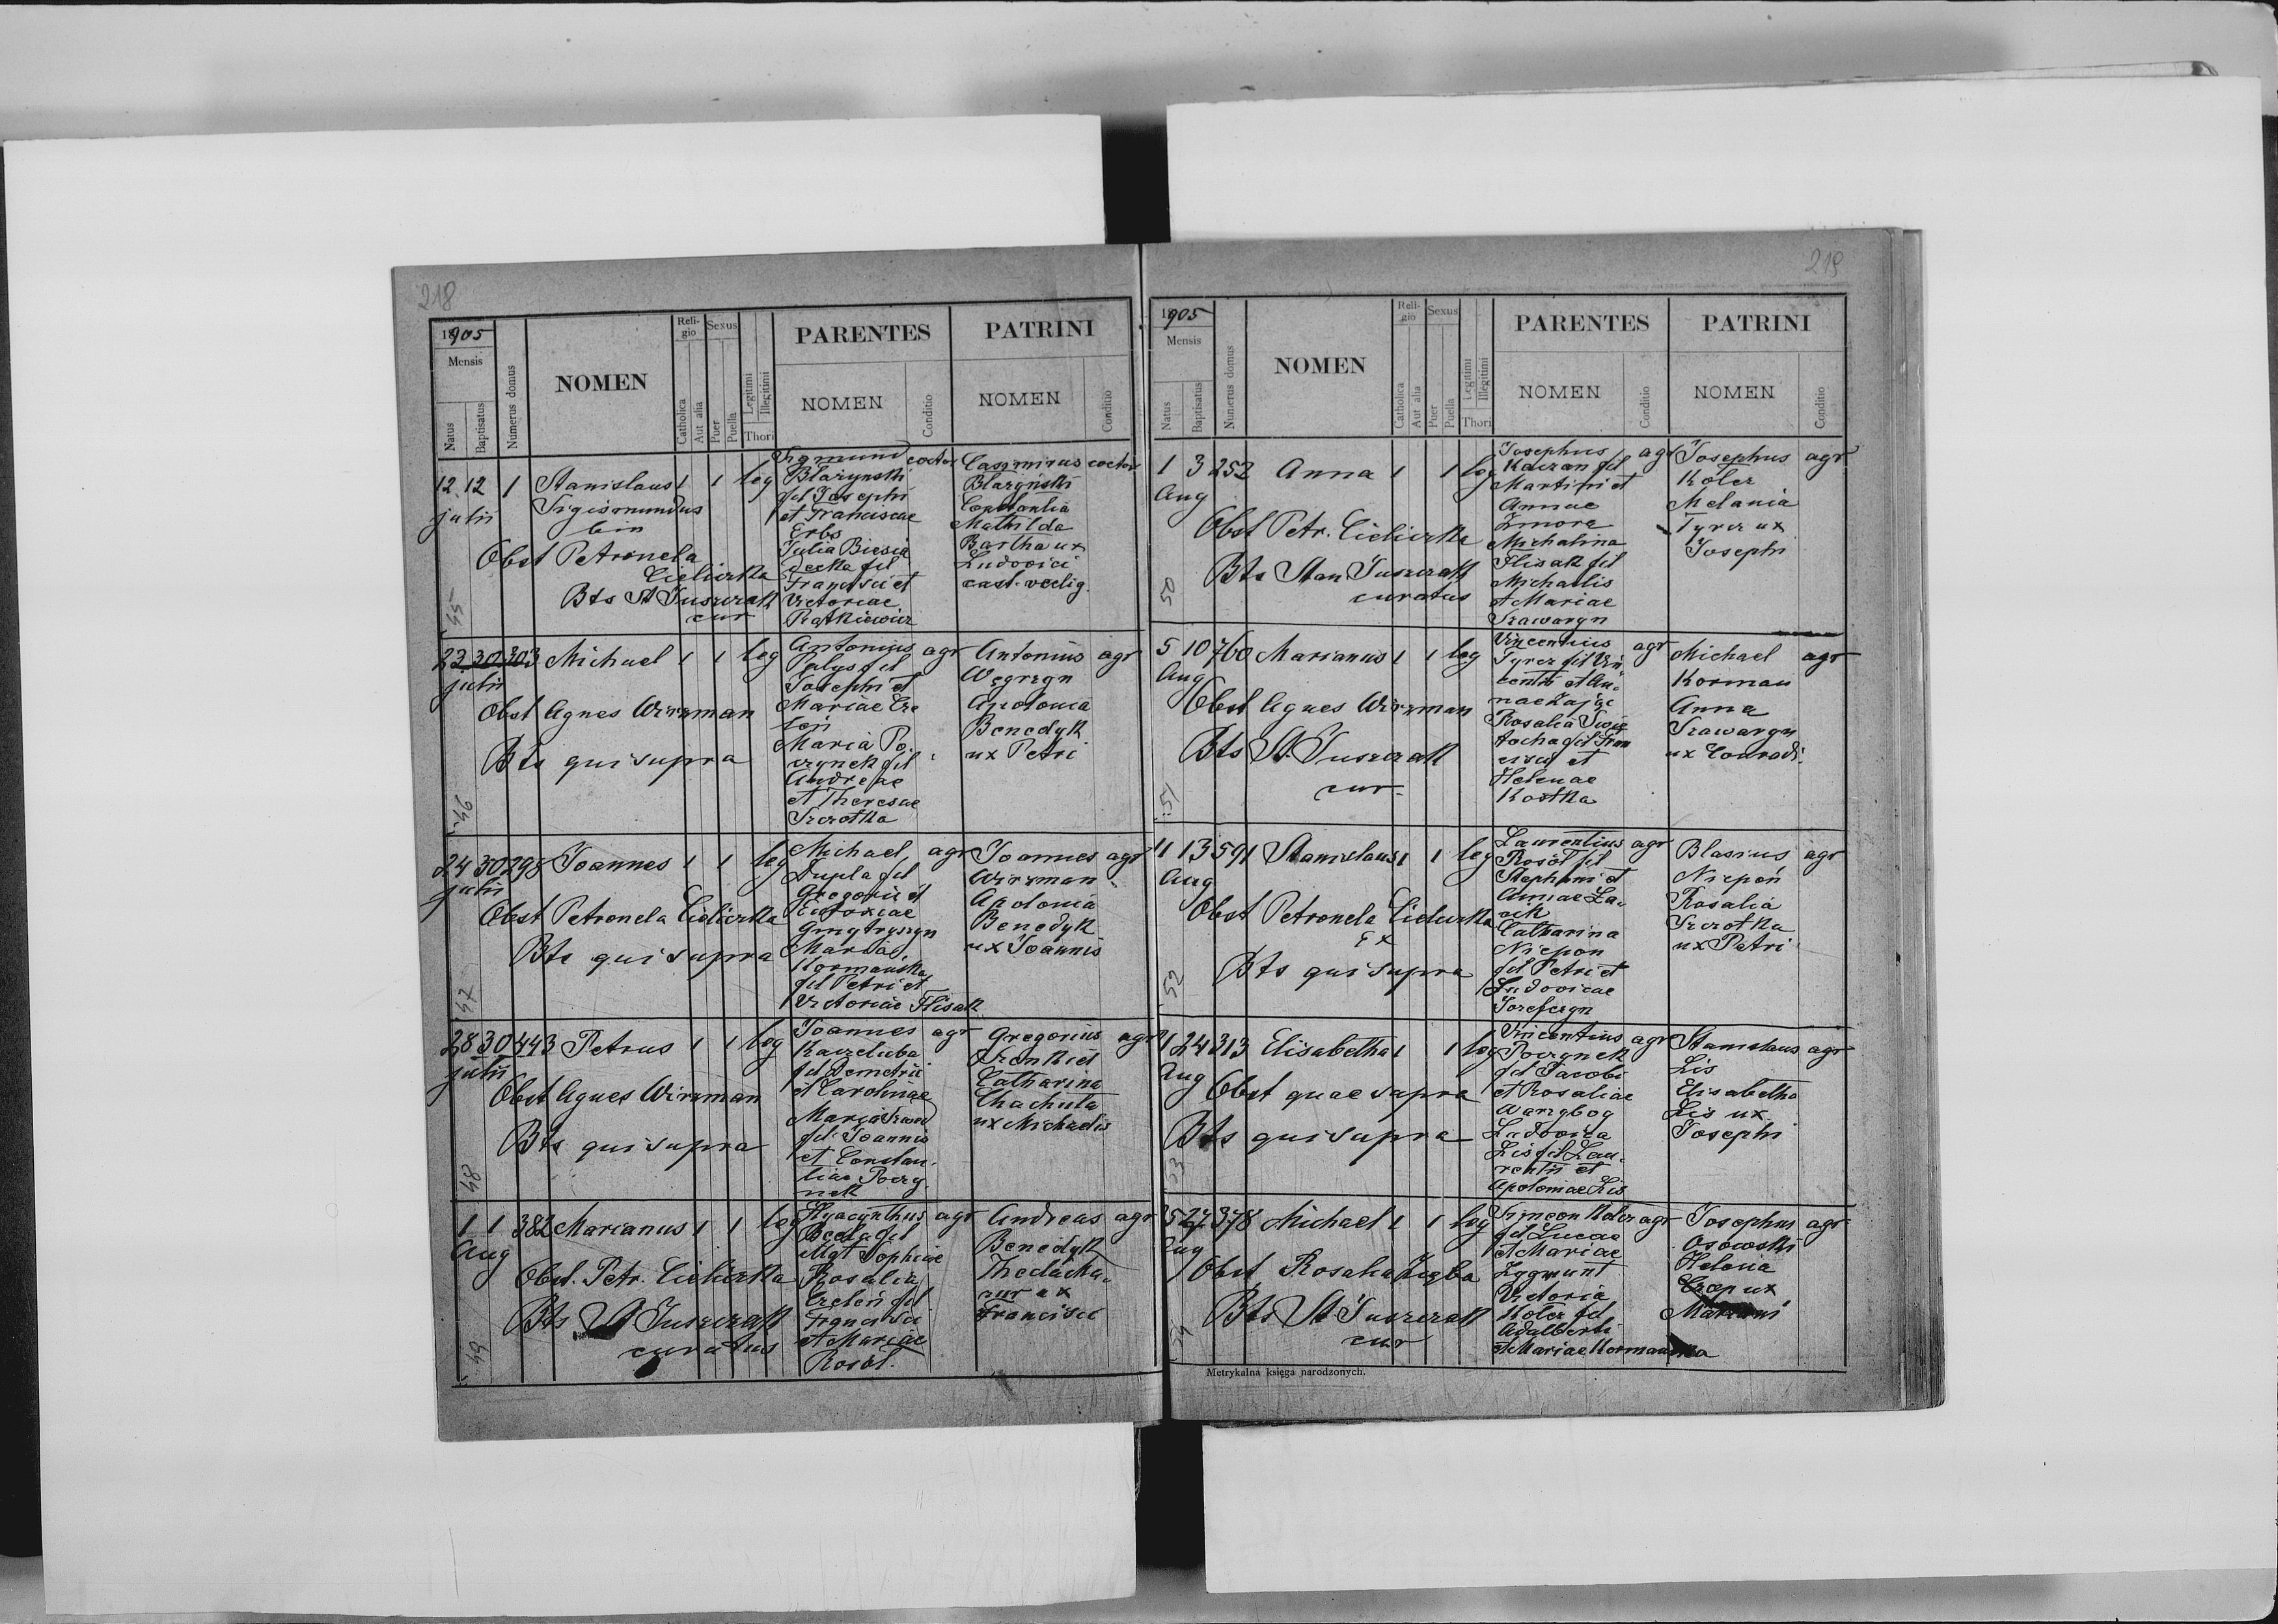 218
1905
Mensis
Natus
Baptisatus
Numerus domus
NOMEN
Religio
Catholica
Aut alia
Sexus
Puer
Puella
Legitimi
Illegitimi
Thori
PARENTES
NOMEN
Conditio
PATRINI
NOMEN
Conditio
12 12 1 Stanislaus 1 1 leg
julii
Sigismundus
bin
Obst Petronela
Cieliczka
Bts St Juszczak
cur
45
Sigmund coctor
Błażyński
fil Josephi
et Franciscae
Erbs
Julia Biesia
decka fil
Francisci et
Victoriae
Ratkiewicz
Casimirus coctor
Błażyński
Constantia
Mathilda
Bartha ux
Ludovici
cust. vectig.
22 30 303 Michael 1 1 leg
julii
Obst Agnes Wirzman
Bts qui supra
46
Antonius agr
Palys fil
Josephi et
Mariae Cze
leń
Maria Po
czynek fil
Andreae
et Theresae
Szczotka
Antonius agr
Węgrzyn
Apolonia
Benedyk
ux Petri
24 30 298 Joannes 1 1 leg
julii
Obst Petronela Cieliczka
Bts qui supra
47
Michael agr
Dupla fil
Gregorii et
Eudoxiae
Dmytryszyn
Maria
Kormańska
fil Petri et
Victoriae Flisak
Joannes agr
Wirzman
Apolonia
Benedyk
ux Joannis
28 30 443 Petrus 1 1 leg
julii
Obst Agnes Wirzman
Bts qui supra
48
Joannes agr
Kaczeluba
fil Demetrii
et Carolinae
Maria
fil Joannis
et Constan
tiae Poczy
nek
Gregorius agr
Catharina
Chachula
ux Michaelis
1 1 382 Marianus 1 1 leg
Aug
Obst. Petr. Cieliczka
Bts St Juszczak
curatus
49
Hyacynthus agr
Becla fil
Mgt Sophiae
Rosalia
Czeleń fil
Francisci
et Mariae
Rosół.
Andreas agr
Benedyk
Thecla
ux
Francisci
219
1905
Mensis
Natus
Baptisatus
Numerus domus
NOMEN
Religio
Catholica
Aut alia
Sexus
Puer
Puella
Legitimi
Illegitimi
Thori
PARENTES
NOMEN
Conditio
PATRINI
NOMEN
Conditio
1 3 252 Anna 1 1 leg
Aug
Obst Petr. Cieliczka
Bts Stan Juszczak
curatus
50
Josephus agr
Kaczan fil
Martini et
Annae
Zmora
Michalina
Flisak fil
Michaelis
et Mariae
Szawaryn
Josephus agr
Kolcz
Melania
Tyrcz ux
Josephi
5 10 760 Marianus 1 1 leg
Aug
Obst Agnes Wirzman
Bts St. Juszczak
cur.
51
Vincentius agr
Tyrcz fil Vin
centii et An
nae Zając
Rosalia Swię
tocha fil Fran
cisci et
Helenae
Kostka
Michael agr
Korman
Anna
Szawaryn
ux Conradi.
11 13 591 Stanislaus 1 1 leg
Aug
Obst Petronela Cieliczka
Bts qui supra
52
Laurentius agr
Rosół fil
Stephani et
Annae Ła
cik
Catharina
Niepoń
fil Petri et
Ludovicae
Jozefczyn
Blasius agr
Niepoń
Rosalia
Szczotka
ux Petri
21 24 313 Elisabetha 1 1 leg
Aug
Obst quae supra
Bts qui supra
53
Vincentius agr
Poczynek
fil Jacobi
et Rosaliae
Warzybog
Ludovica
Lis fil Lau
rentii et
Apoloniae Lis
Stanislaus agr
Lis
Elisabetha
Lis ux
Josephi
25 27 378 Michael 1 1 leg
Aug
Obst Rosalia Zięba
Bts St Juszczak
cur
54
Simeon Kolcz agr
fil Lucae
et Mariae
Zygmunt
Victoria
Kolcz fil
Adalberti
et Mariae Kormańska
Josephus agr
Osowski
Helena
Czop ux
Mariani
Metrykalna księga narodzonych.